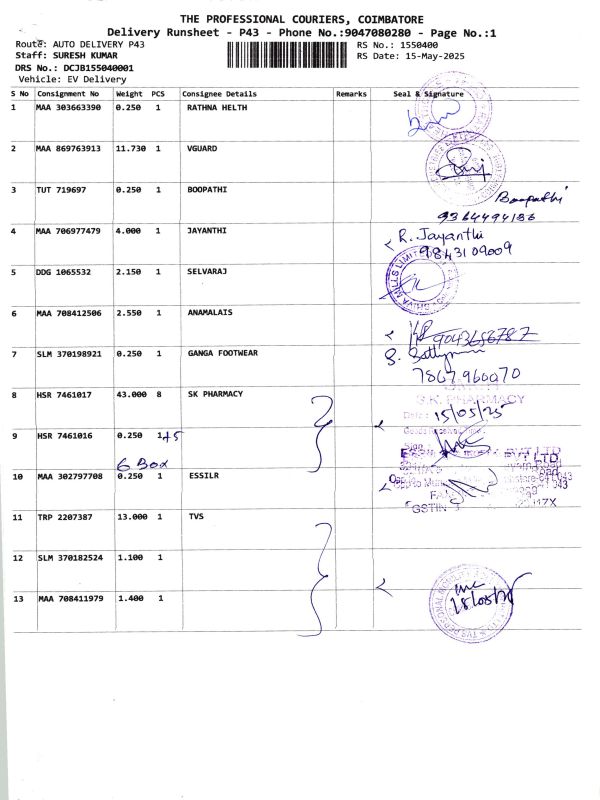 THE PROFESSIONAL COURIERS, COIMBATORE
Delivery Runsheet - P43 - Phone No.:9047080280 - Page No.:1
Route: AUTO DELIVERY P43
RS No.: 1550400
Staff: SURESH KUMAR
RS Date: 15-May-2025
DRS No.: DCJB155040001
Vehicle: EV Delivery
S No Consignment No Weight PCS Consignee Details Remarks Seal & Signature
1 MAA 303663390 0.250 1 RATHNA HELTH
2 MAA 869763913 11.730 1 VGUARD
3 TUT 719697 0.250 1 BOOPATHI
Boopathi
9364494186
4 MAA 706977479 4.000 1 JAYANTHI
R. Jayanthi
9843109009
5 DDG 1065532 2.150 1 SELVARAJ
SHIVA MILLS LIMITED
6 MAA 708412506 2.550 1 ANAMALAIS
9043656787
7 SLM 370198921 0.250 1 GANGA FOOTWEAR
7867960070
8 HSR 7461017 43.000 8 SK PHARMACY
S.K. PHARMACY
Date: 15/05/25
9 HSR 7461016 0.250 1+5
6 Box
10 MAA 302797708 0.250 1 ESSILR
GSTIN
11 TRP 2207387 13.000 1 TVS
12 SLM 370182524 1.100 1
13 MAA 708411979 1.400 1